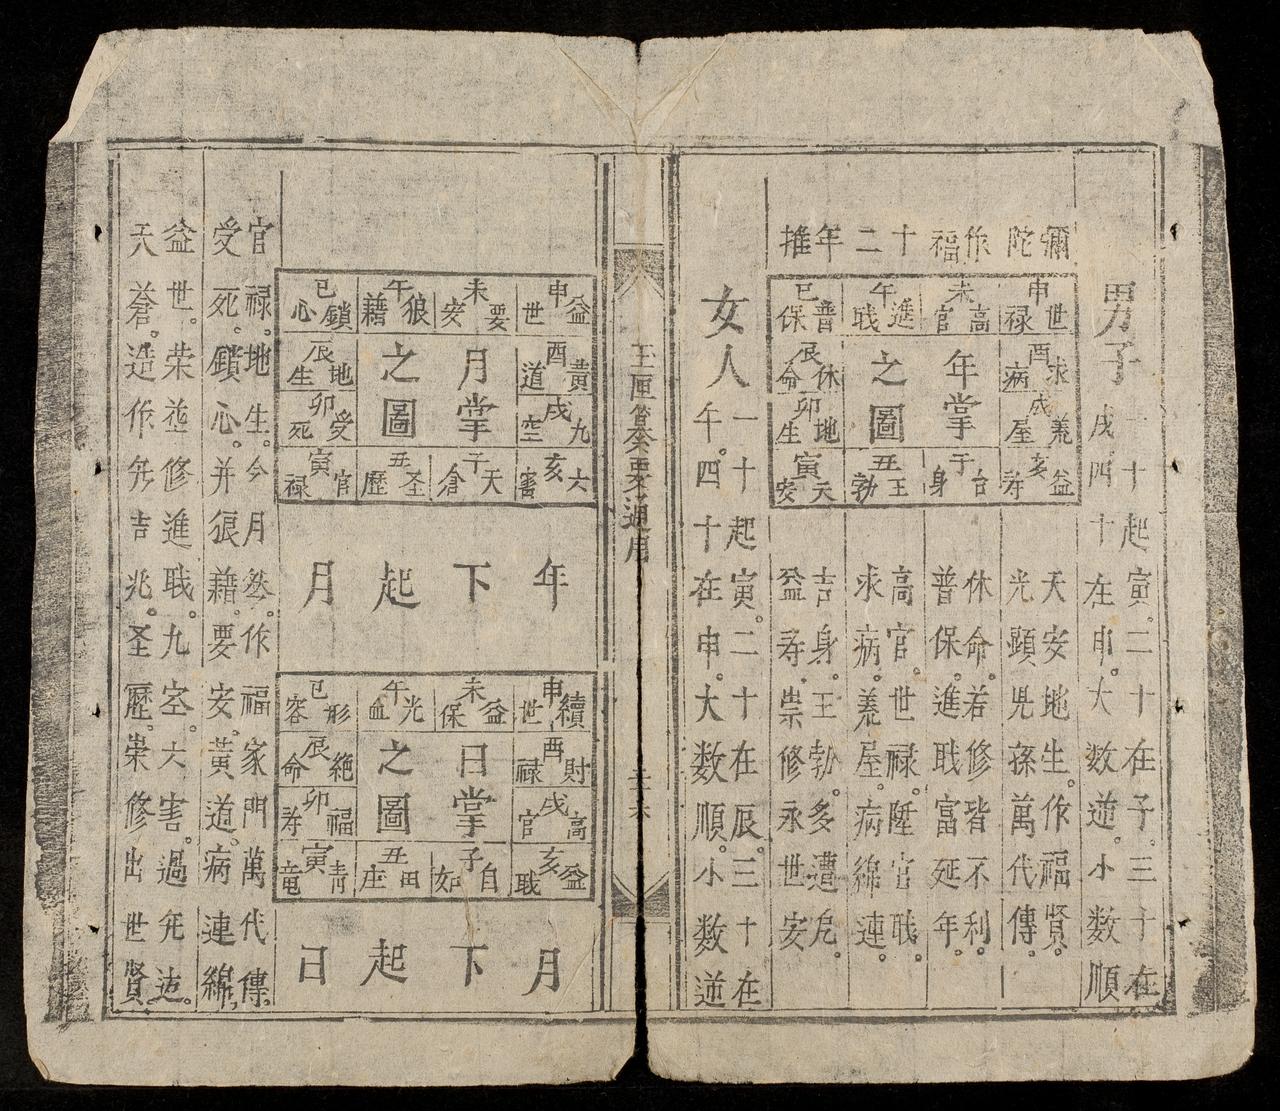 男子一十起寅。二十在子。三十在
戌。四十在申。大数逆。小数順
彌陀作福十二年推
申世禄
未高官
午進職
巳普保
酉求病
年掌
之圖
辰休命
戌羗屋
卯地生
亥益寿
子台身
丑王勃
寅天安
天安地生。作福賢。
光顕児孫萬代傳。
休命。若修皆不利。
普保。進職富延年。
高官。世禄。陞官職。
求病。羗屋。病綿連。
吉身。王勃。多遭危。
益寿。崇修永世安。
女人一十起寅。二十在辰。三十在
午。四十在申。大数順。小数逆
玉匣纂要通用
申益世
未要安
午狼藉
巳鎖心
酉黄道
月掌
之圖
辰地生
戌九空
卯受死
亥六害
子天倉
丑圣歴
寅官禄
年下起月
申續世
未益保
午光血
巳形容
酉財禄
日掌
之圖
辰絶命
戌高官
卯福寿
亥益職
子自如
丑田座
寅青竜
月下起日
官禄。地生。今月然。作福家門萬代傳。
受死。鎖心。并狼藉。要安。黄道。病連綿,
益世。荣並修進職。九空。六害。過
天蒼。造作吉兆。圣歴。崇修出世賢。